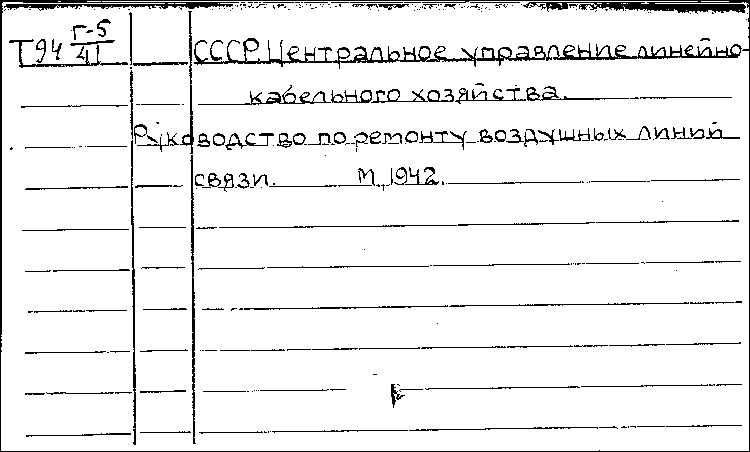 Т94 Г-5/41
СССР. Центральное управление линейно-
кабельного хозяйства.
Руководство по ремонту воздушных линий
связи. М., 1942.